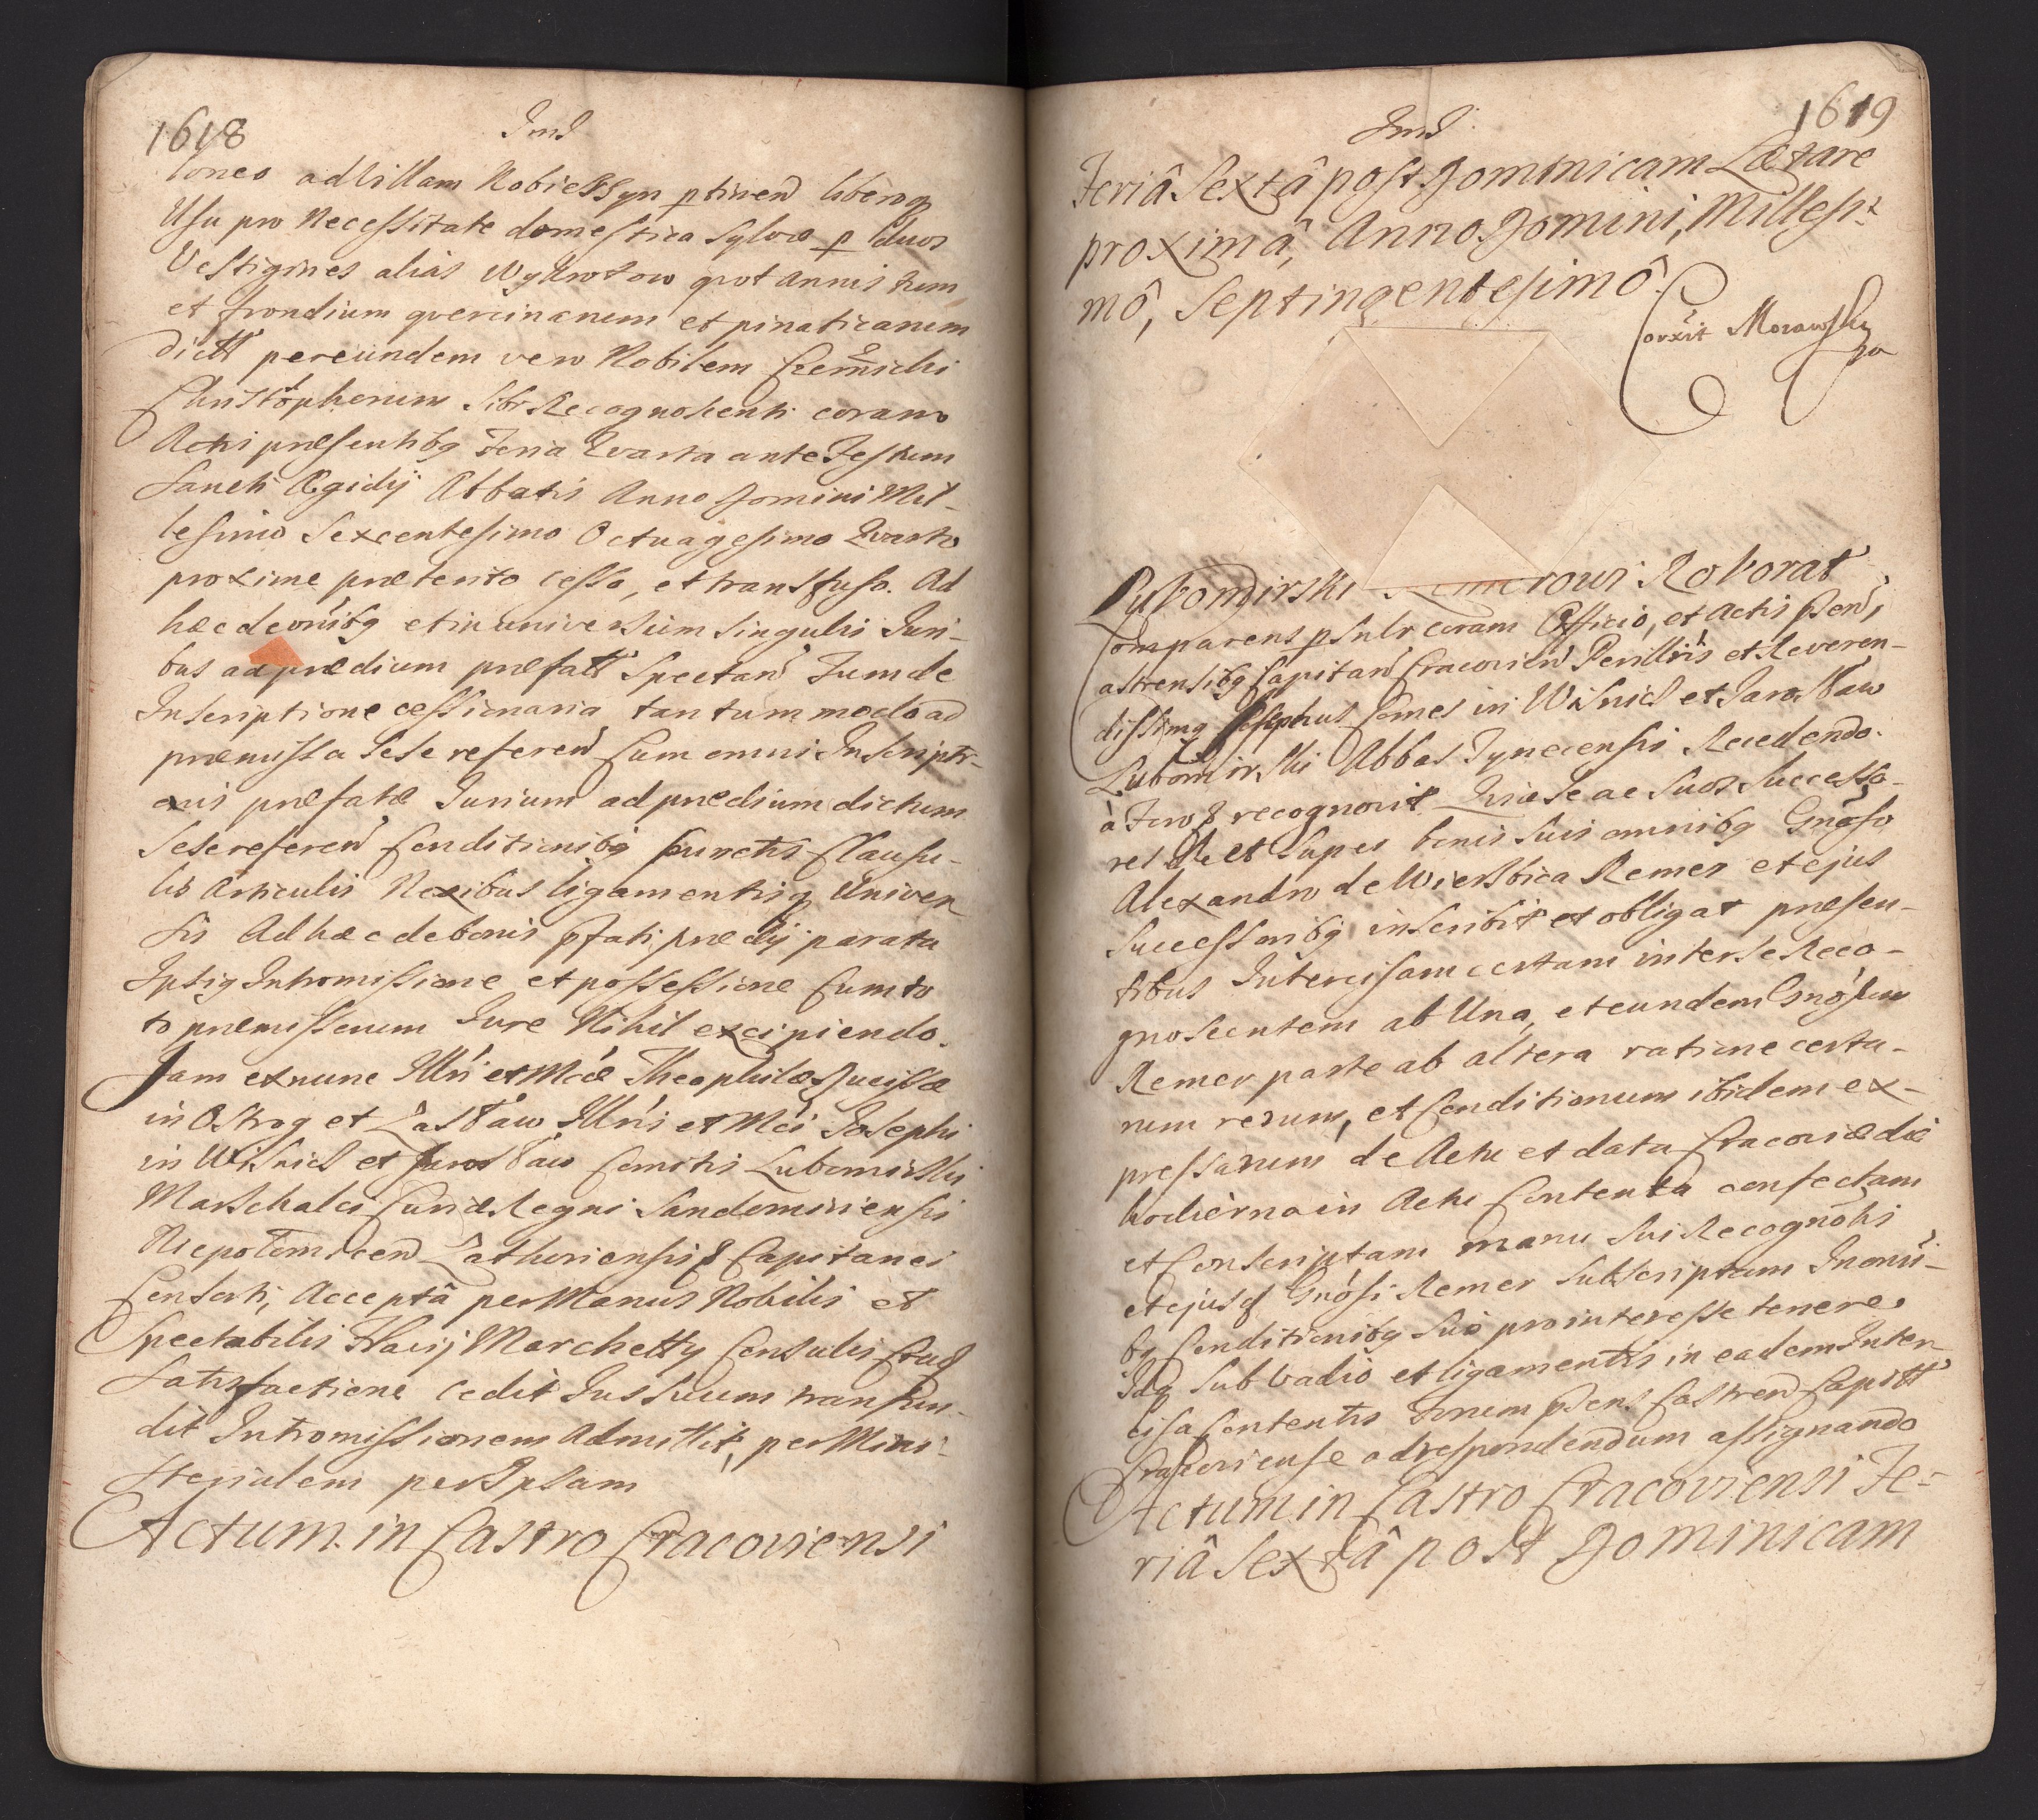 1618
Ind
tones ad Villam Kobierzyn ptinen liberoq
Usu pro Necessitate domestica Sylvæ p duos
Vestigines alias Wykrotow quot annis tum
et frondium quercinarum et pinaticarum
dictt per eundem vero Nobilem
Christophorum Sibi Recognoscenti coram
Actis præsentibq Feria Qvarta ante Festum
Sancti Ægidij Abbatis Anno Domini Mil-
lesimo Sexcentesimo Octuagesimo Qvarto
proxime præterito cesso, et transfuso. Ad
hæc de omibq et in universum Singulis Juri-
bus ad prædium præfatt Spectan Tum de
Inscriptione cessionaria tantummodo ad
præmissa Sese referen Cum omni Inscripti-
onis præfatæ Jurium ad prædium dictum
Sese referen Conditionibq punctis Clausu-
lis Articulis Nexibus ligamentisq Univer
sis Ad hæc de bonis pfati prædij parata
Ipsiq Intromissione et possessione Cum to
to præmissorum Jure Nihil excipiendo.
Jam ex nunc Illris et Mcæ Theophilæ Ducissæ
in Ostrog et Zasław Illris et Mci Josephi
in Wisnicz et Jarosław Comitis Lubomirski
Marschalci Curiæ Regni Sandomiriensis
Niepołomicen Zathoriensis Capitanei
Consorti, Acceptâ per Manus Nobilis et
Spectabilis Marchetty Consulis
Satisfactione cedit Jus Suum transfun-
dit Intromissionem Admittit, per Mini-
sterialem per Ipsam
Actum in Castro Cracoviensi
1619
Ind
Feriâ Sextâ post Dominicam Lætare
proximâ, Anno Domini, Millesi-
mô, Septingentesimô.
Corxit Morawski
Lubomirski Remerowi Roborat
Comparens psnlr coram Officio, et Actis psen,
astrensibq Capitan Cracovien Perillris et Reveren-
dissimq Josephus Comes in Wisnicz et Jarosław
Lubomirski Abbas Tynecensis Recedendo.
à Foro recognovit Quia Se ac Suos Successo-
res Re et Super bonis Suis omnibq Gnoso
Alexandro de Wierzbica Remer et ejus
Successoribq inscribit et obligat præsen-
tibus Intercisam certam inter Se Reco-
gnoscentem ab Una, et eundem Gnosum
Remer parte ab altera ratione certa-
rum rerum, et Conditionum ibidem ex-
pressarum de Actu et data Cracoviæ die
hodierna in Actu Contenta confectam
et Conscriptam manu Sui Recognotis
et ejusq Gnosi Remer Subscriptam In omni-
bq Conditionibq Suo pro interesse tenere
Idq Sub vadio et ligamentis in eadem Inter-
cisa Contentis Forum psens Castren Capitt
Cracoviense ad respondendum assignando
Actum in Castro Cracoviensi Fe-
riâ Sextâ post Dominicam